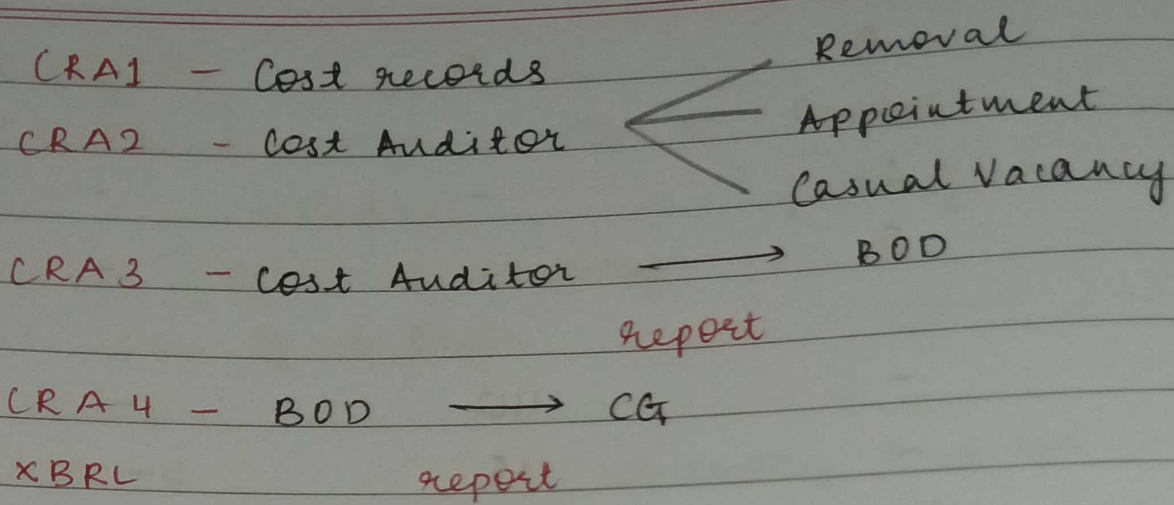 CRA1 - Cost records
Removal
CRA2 - Cost Auditor
Appointment
Casual Vacancy
CRA 3 - Cost Auditor → BOD
report
CRA 4 - BOD → CG
XBRL report